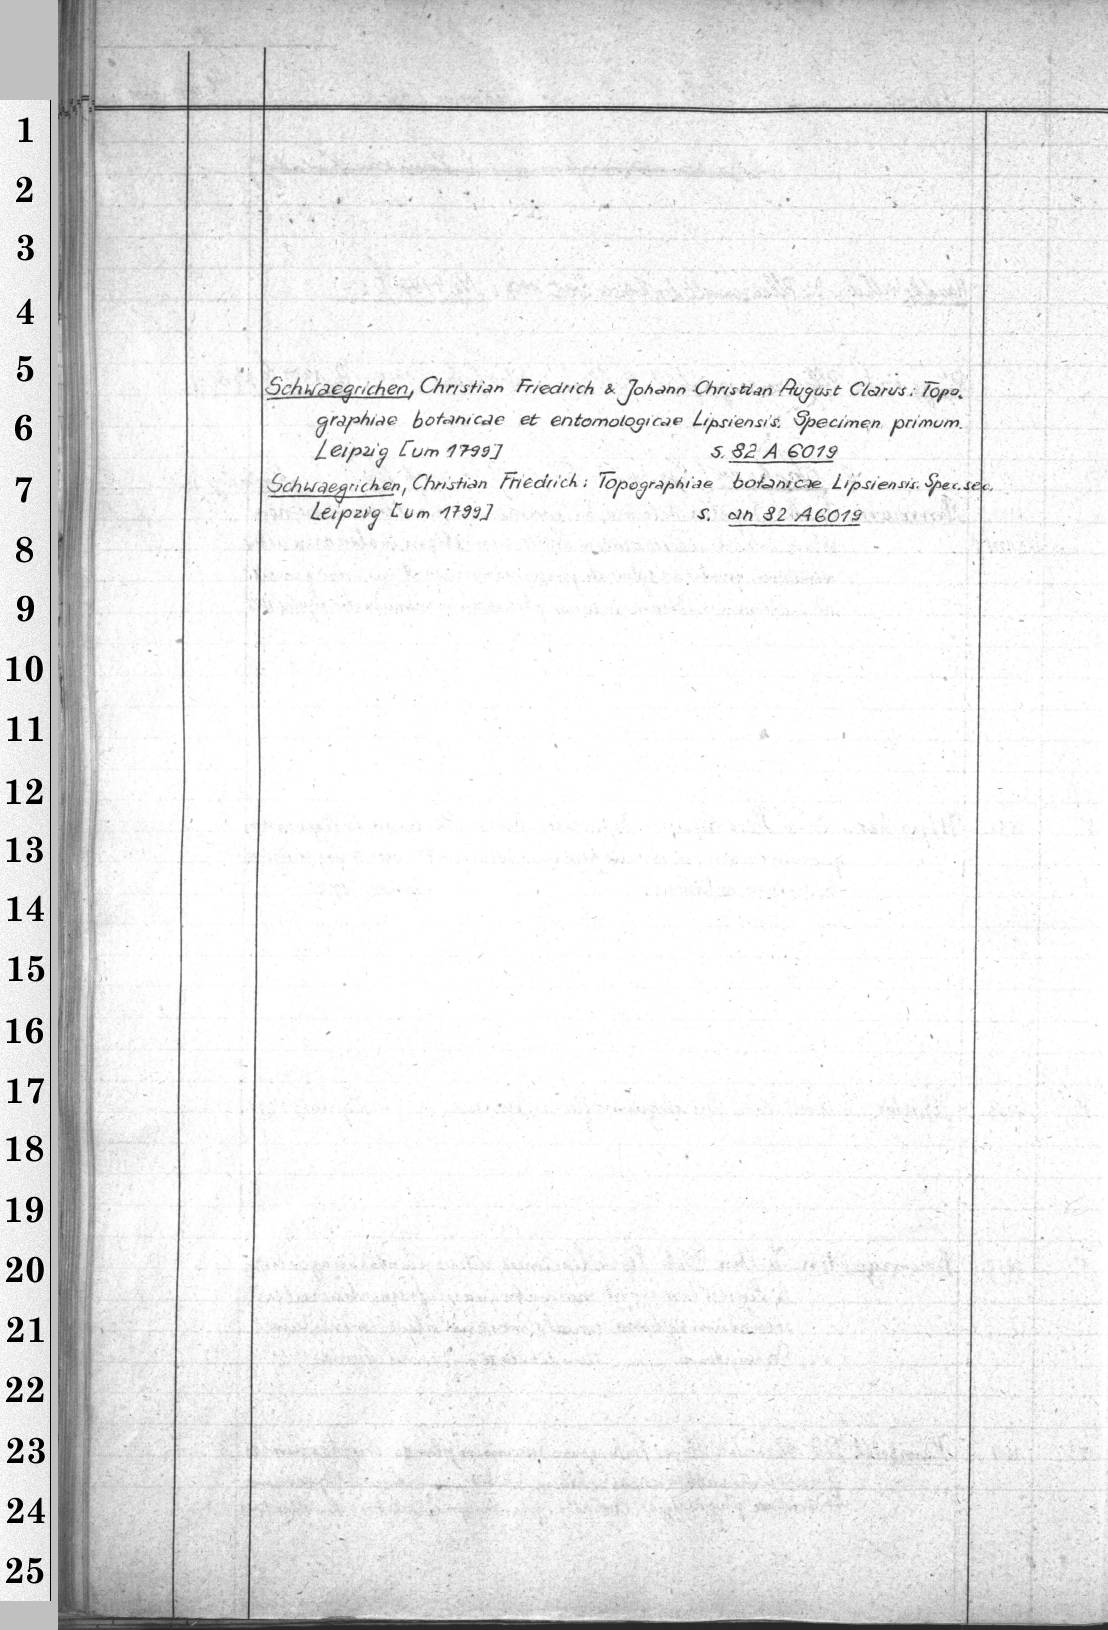 1
2
3
4
5
Schwaegrichen, Christian Friedrich & Johann Christian August Clarus: Topo-
6
graphiae botanicae et entomologicae Lipsiensis. Specimen primum.
Leipzig [um 1799] s. 82 A 6019
7
Schwaegrichen, Christian Friedrich: Topographiae botanicae Lipsiensis. Spec. sec.
Leipzig [um 1799] s. an 82 A 6019
8
9
10
11
12
13
14
15
16
17
18
19
20
21
22
23
24
25